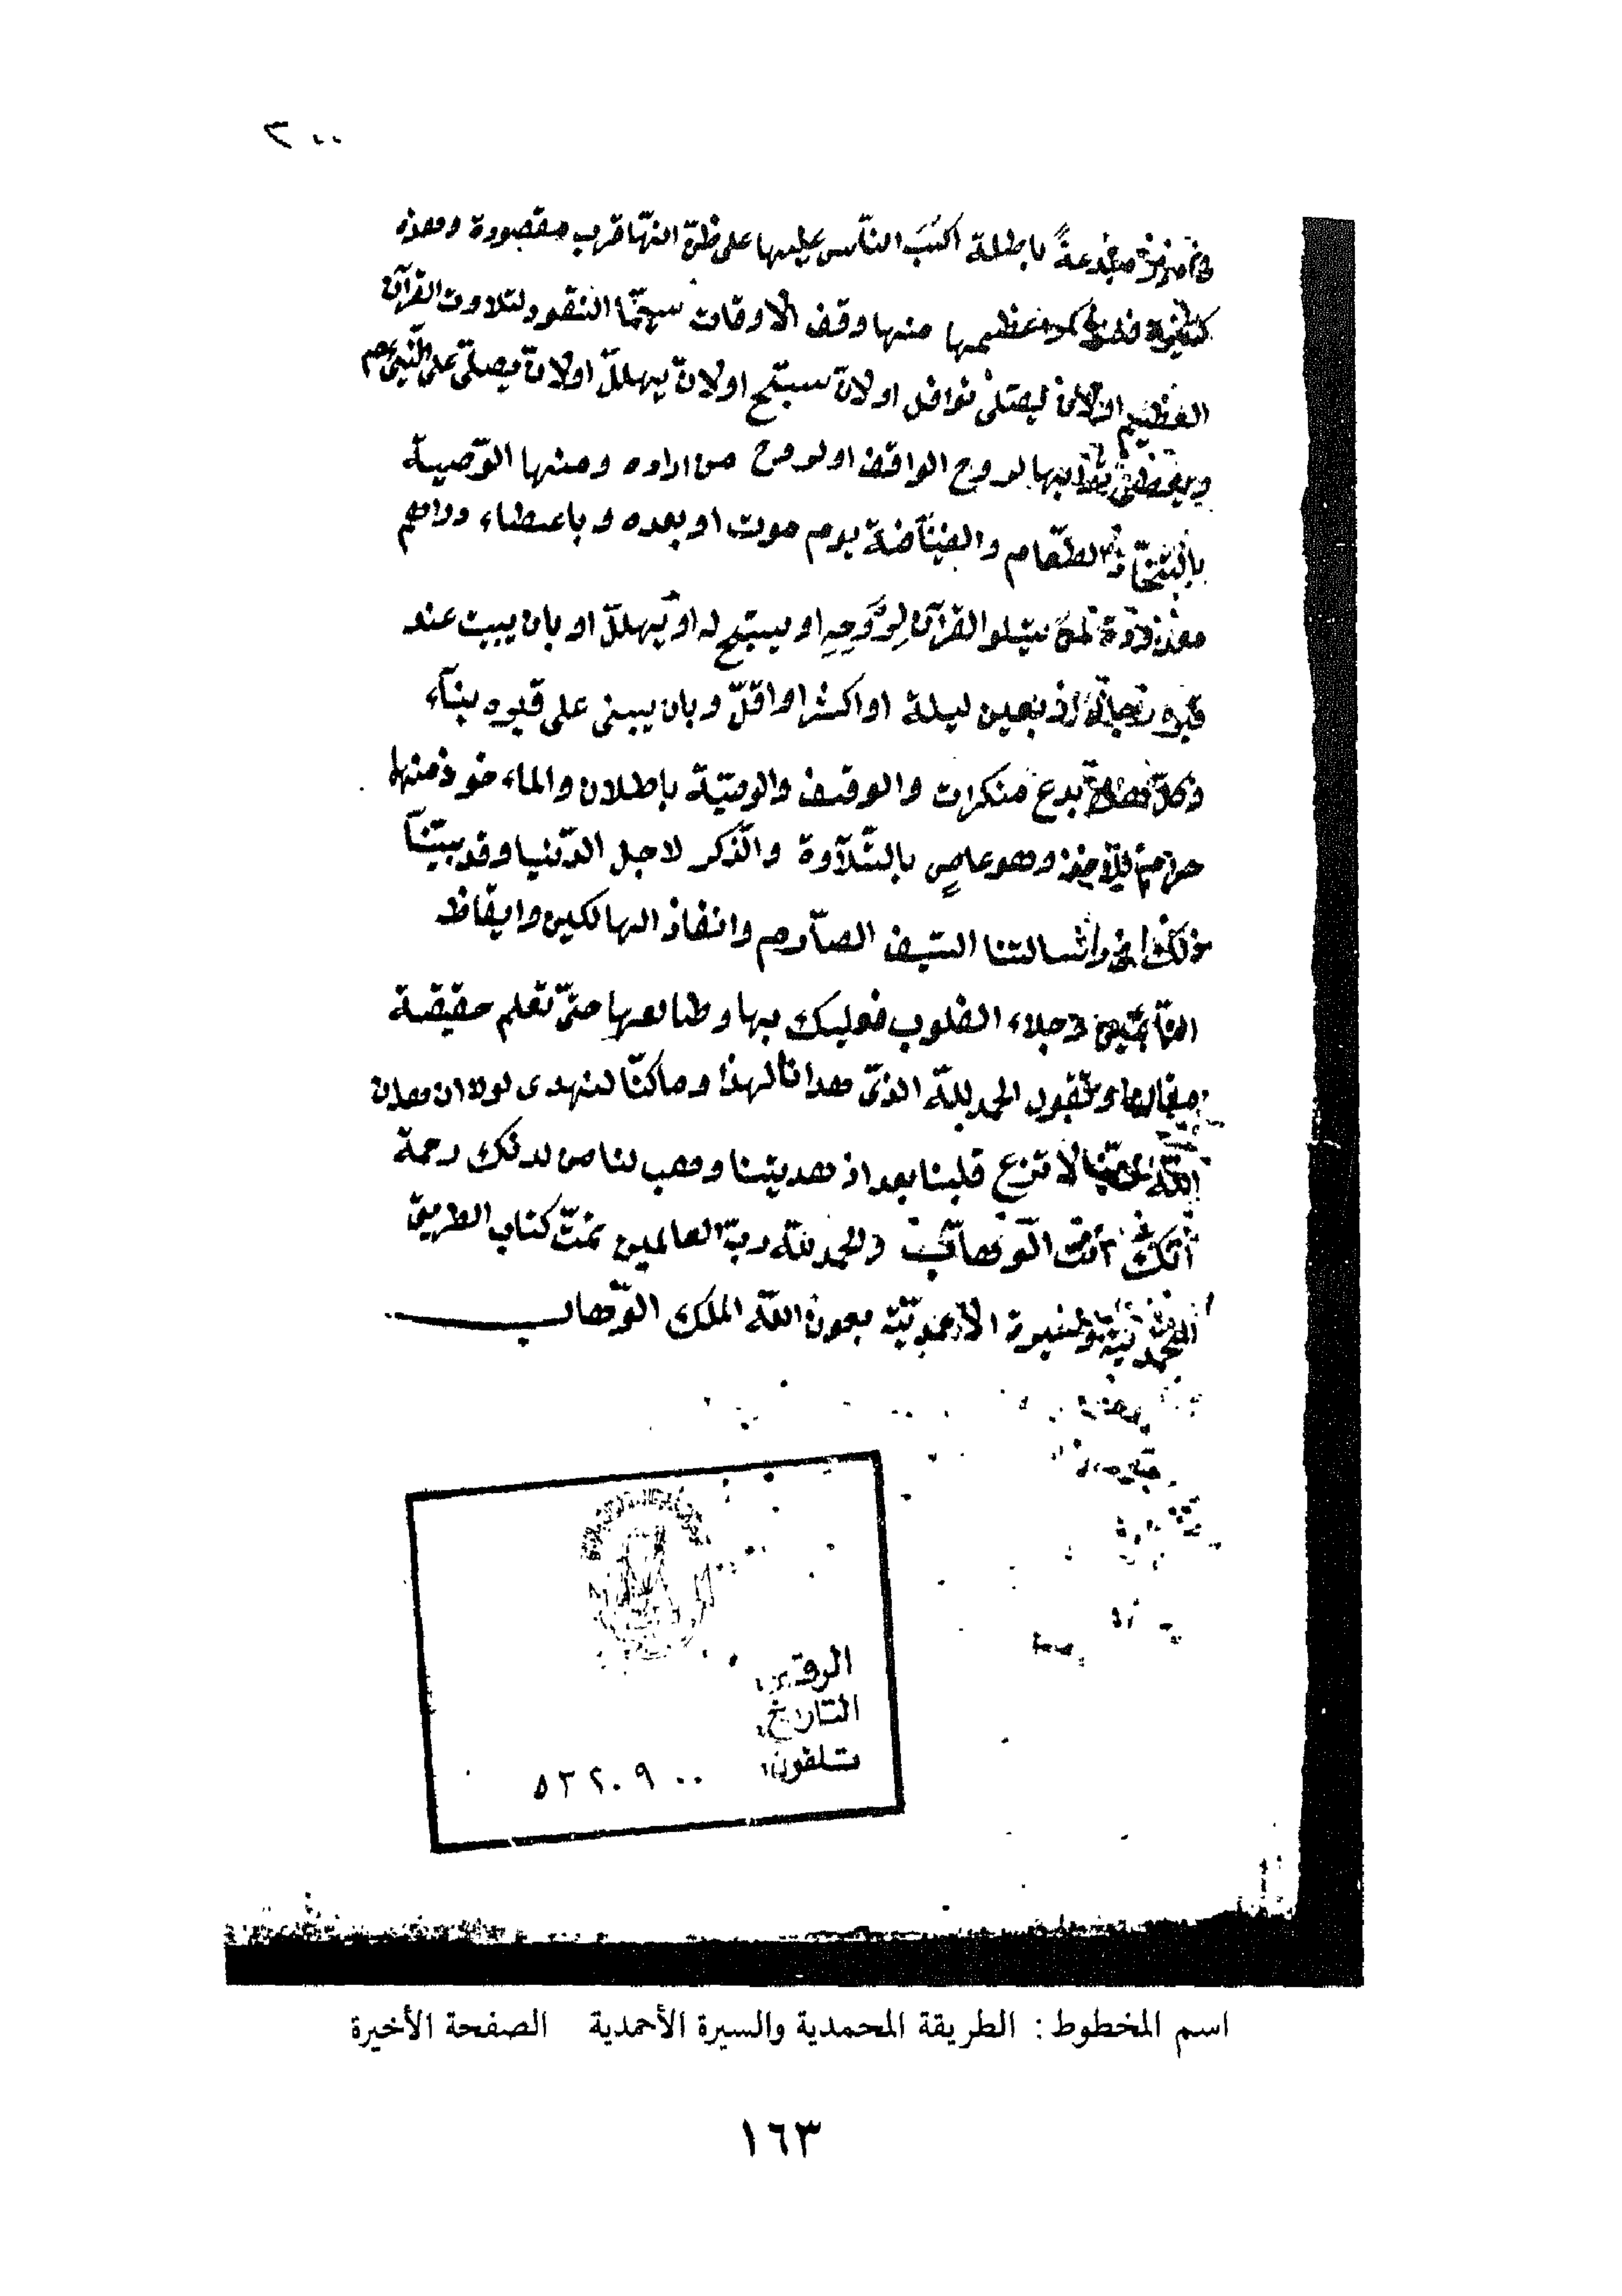 ٢٠٠
باطلة اكبّ النّاس عليها على ظنّ انّها قرب مقصودة وهذه
فلنذكر اعظمها منها وقف الاوقات سيّما النقود لتلاوت القرآن
العظيم اولان ليصلى نوافل اولان سبّح اولان يهلّل اولان يصلى على النّبىّ عم
ويعطى ثوابها لروح الواقف اولروح من اراده ومنها الوّصيية
والطّعام والضيّافة يوم موت او بعده وباعطاء دراهم
يتلو القرآن لرُوحِهِ او يسبّح له او يهلّل او بان يبيت عند
قبره اربعين ليلة او اكثر او اقلّ وبان يبنى على قبره بنآء
بدع منكرات والوقف والوصيّة باطلان والماء خوذ منها
حرام للآخذ وهو عاصٍ بالتّلآوة والذّكر لاجل الدّنيا وقد بيّنّآ
رسالتنا السّيف الصّآرم وانقاذ الهالكين وايقاظ
النّآئمين وجلاء القلوب فعليك بها وطالعها حتّى تعلم حقيقة
مقالها وتقول الحمد للّه الذىّ هدانا لهذا وماكنّا لنهدى لولا ان هدان
اللّه ربّنا لا تزغ قلبنا بعد اذ هديتنا وهب لنا من لدنك رحمة
انّك انت الوّهاب والحمد للّه ربّ العالمين تمّت كتاب الطريق
المحمديّة والسيرة الاحمديّة بعون اللّه الملك الوّهاب
الرقم:
التاريخ:
تلفون: ٥٢٢٠٩٠٠
اسم المخطوط: الطريقة المحمدية والسيرة الأحمدية الصفحة الأخيرة
١٦٣